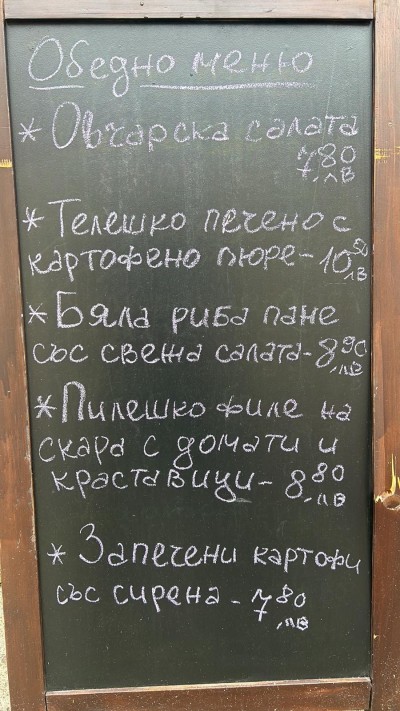 Обедно меню
* Овчарска салата
7,80 лв
* Телешко печено с
картофено пюре - 10,50 лв
* Бяла риба пане
със свежа салата - 8,90 лв
* Пилешко филе на
скара с домати и
краставици - 8,80 лв
* Запечени картофи
със сирена - 7,80 лв